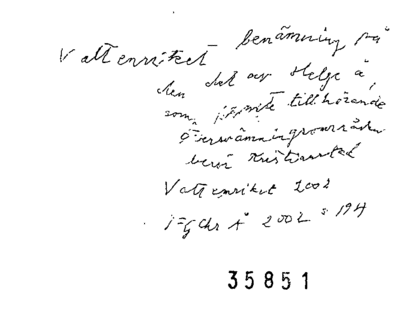 Vattenriket benämning på
den del av Helge å,
som jämte tillhörande
översvämningsområden
berör Kristianstad
Vattenriket 2002
FGChr Å 2002 s 194
35851